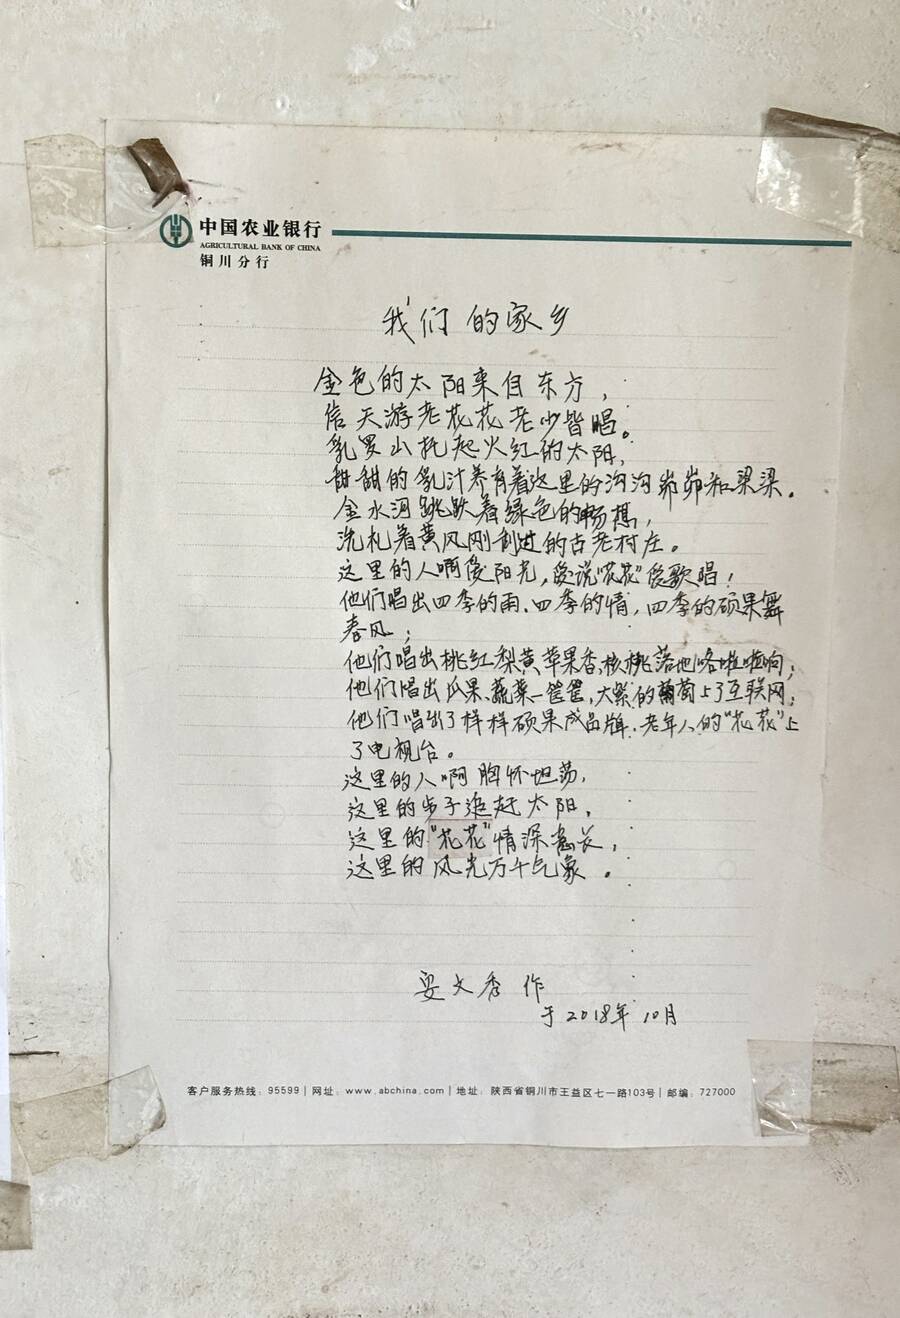 中国农业银行
AGRICULTURAL BANK OF CHINA
铜川分行
我们的家乡
金色的太阳来自东方，
信天游老花花老少皆唱。
乳罗山托起火红的太阳，
甜甜的乳汁养育着这里的沟沟峁峁和梁梁。
金水河跳跃着绿色的畅想，
洗礼着黄风刚刮过的古老村庄。
这里的人啊爱阳光，爱说“花花”爱歌唱！
他们唱出四季的雨、四季的情，四季的硕果舞
春风；
他们唱出桃红梨黄苹果香，核桃落地咯啦啦响；
他们唱出瓜果、蔬菜一筐筐，大紫的葡萄上了互联网；
他们唱出了样样硕果成品牌，老年人的“花花”上
了电视台。
这里的人啊胸怀坦荡，
这里的步子追赶太阳，
这里的“花花”情深意长，
这里的风光万千气象。
文秀 作
于2018年10月
客户服务热线：95599 | 网址：www.abchina.com | 地址：陕西省铜川市王益区七一路103号 | 邮编：727000